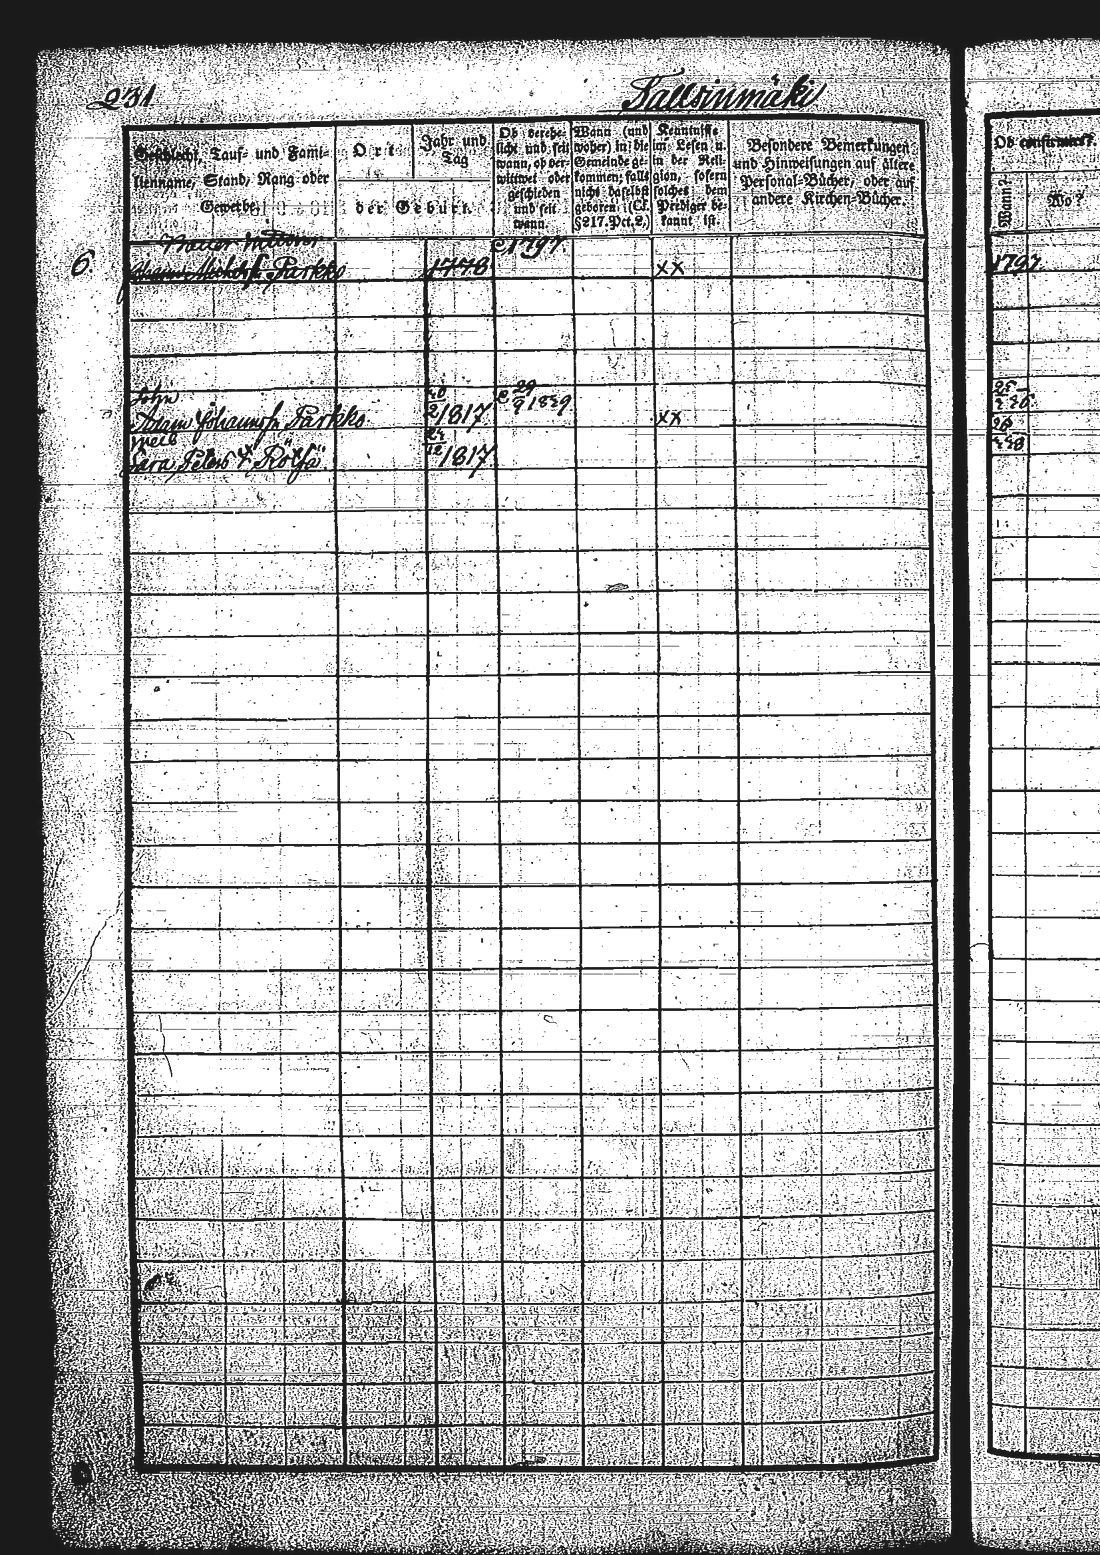 231
Tallsinmäki
Geschlecht, Tauf- und Fami-
lienname, Stand, Rang oder
Gewerbe.
Ort
Jahr und
Tag
der Geburt.
Ob verehe-
licht und seit
wann, ob ver-
wittwet oder
geschieden
und seit
wann.
Wann (und
woher) in die
Gemeinde ge-
kommen; falls
nicht daselbst
geboren (Cf.
§ 217. Pct. 2.)
Kenntnisse
im Lesen u.
in der Reli-
gion, sofern
solches dem
Prediger be-
kannt ist.
Besondere Bemerkungen
und Hinweisungen auf ältere
Personal-Bücher, oder auf
andere Kirchen-Bücher.
Ob confirmirt?
Wann?
Wo?
6. Parkko 1778 1797. xx 1797.
Sohn
Adam Johannsohn Parkko 1817 1839 xx
Weib
Sara Peters 1817